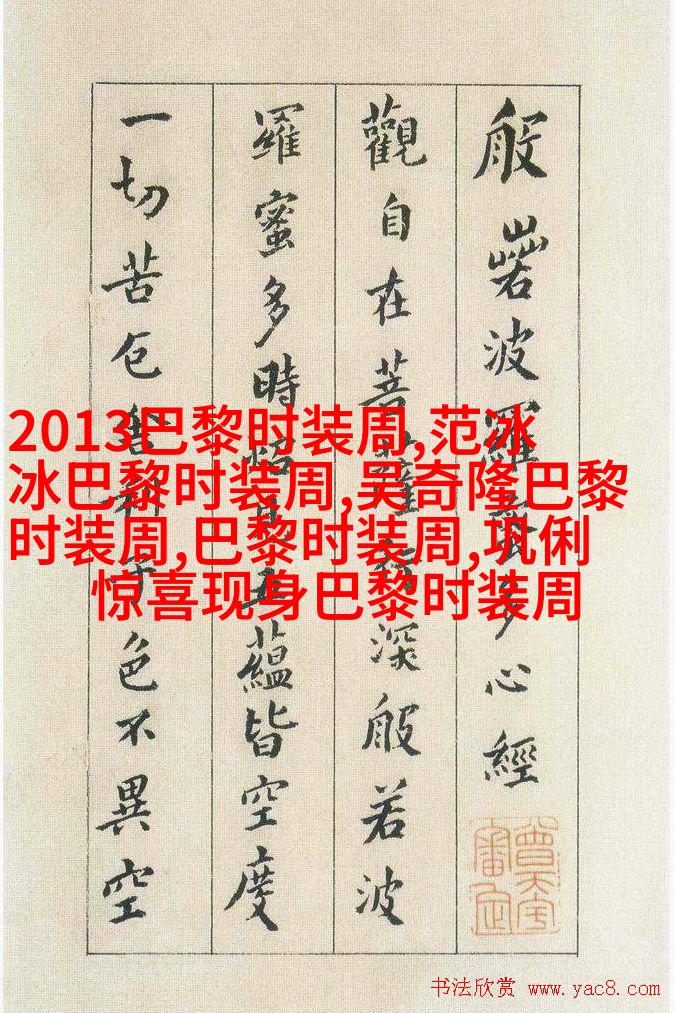 般若波羅蜜多心經
觀自在菩薩行深般若波
羅蜜多時照見五蘊皆空度
一切苦厄舍利子色不異空
2013巴黎时装周,范冰
冰巴黎时装周,吴奇隆巴黎
时装周,巴黎时装周,巩俐
惊喜现身巴黎时装周
书法欣赏 www.yac8.com